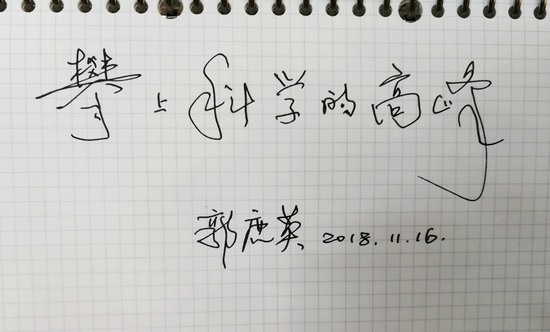 攀上科学的高峰
郭鹿英 2018.11.16.